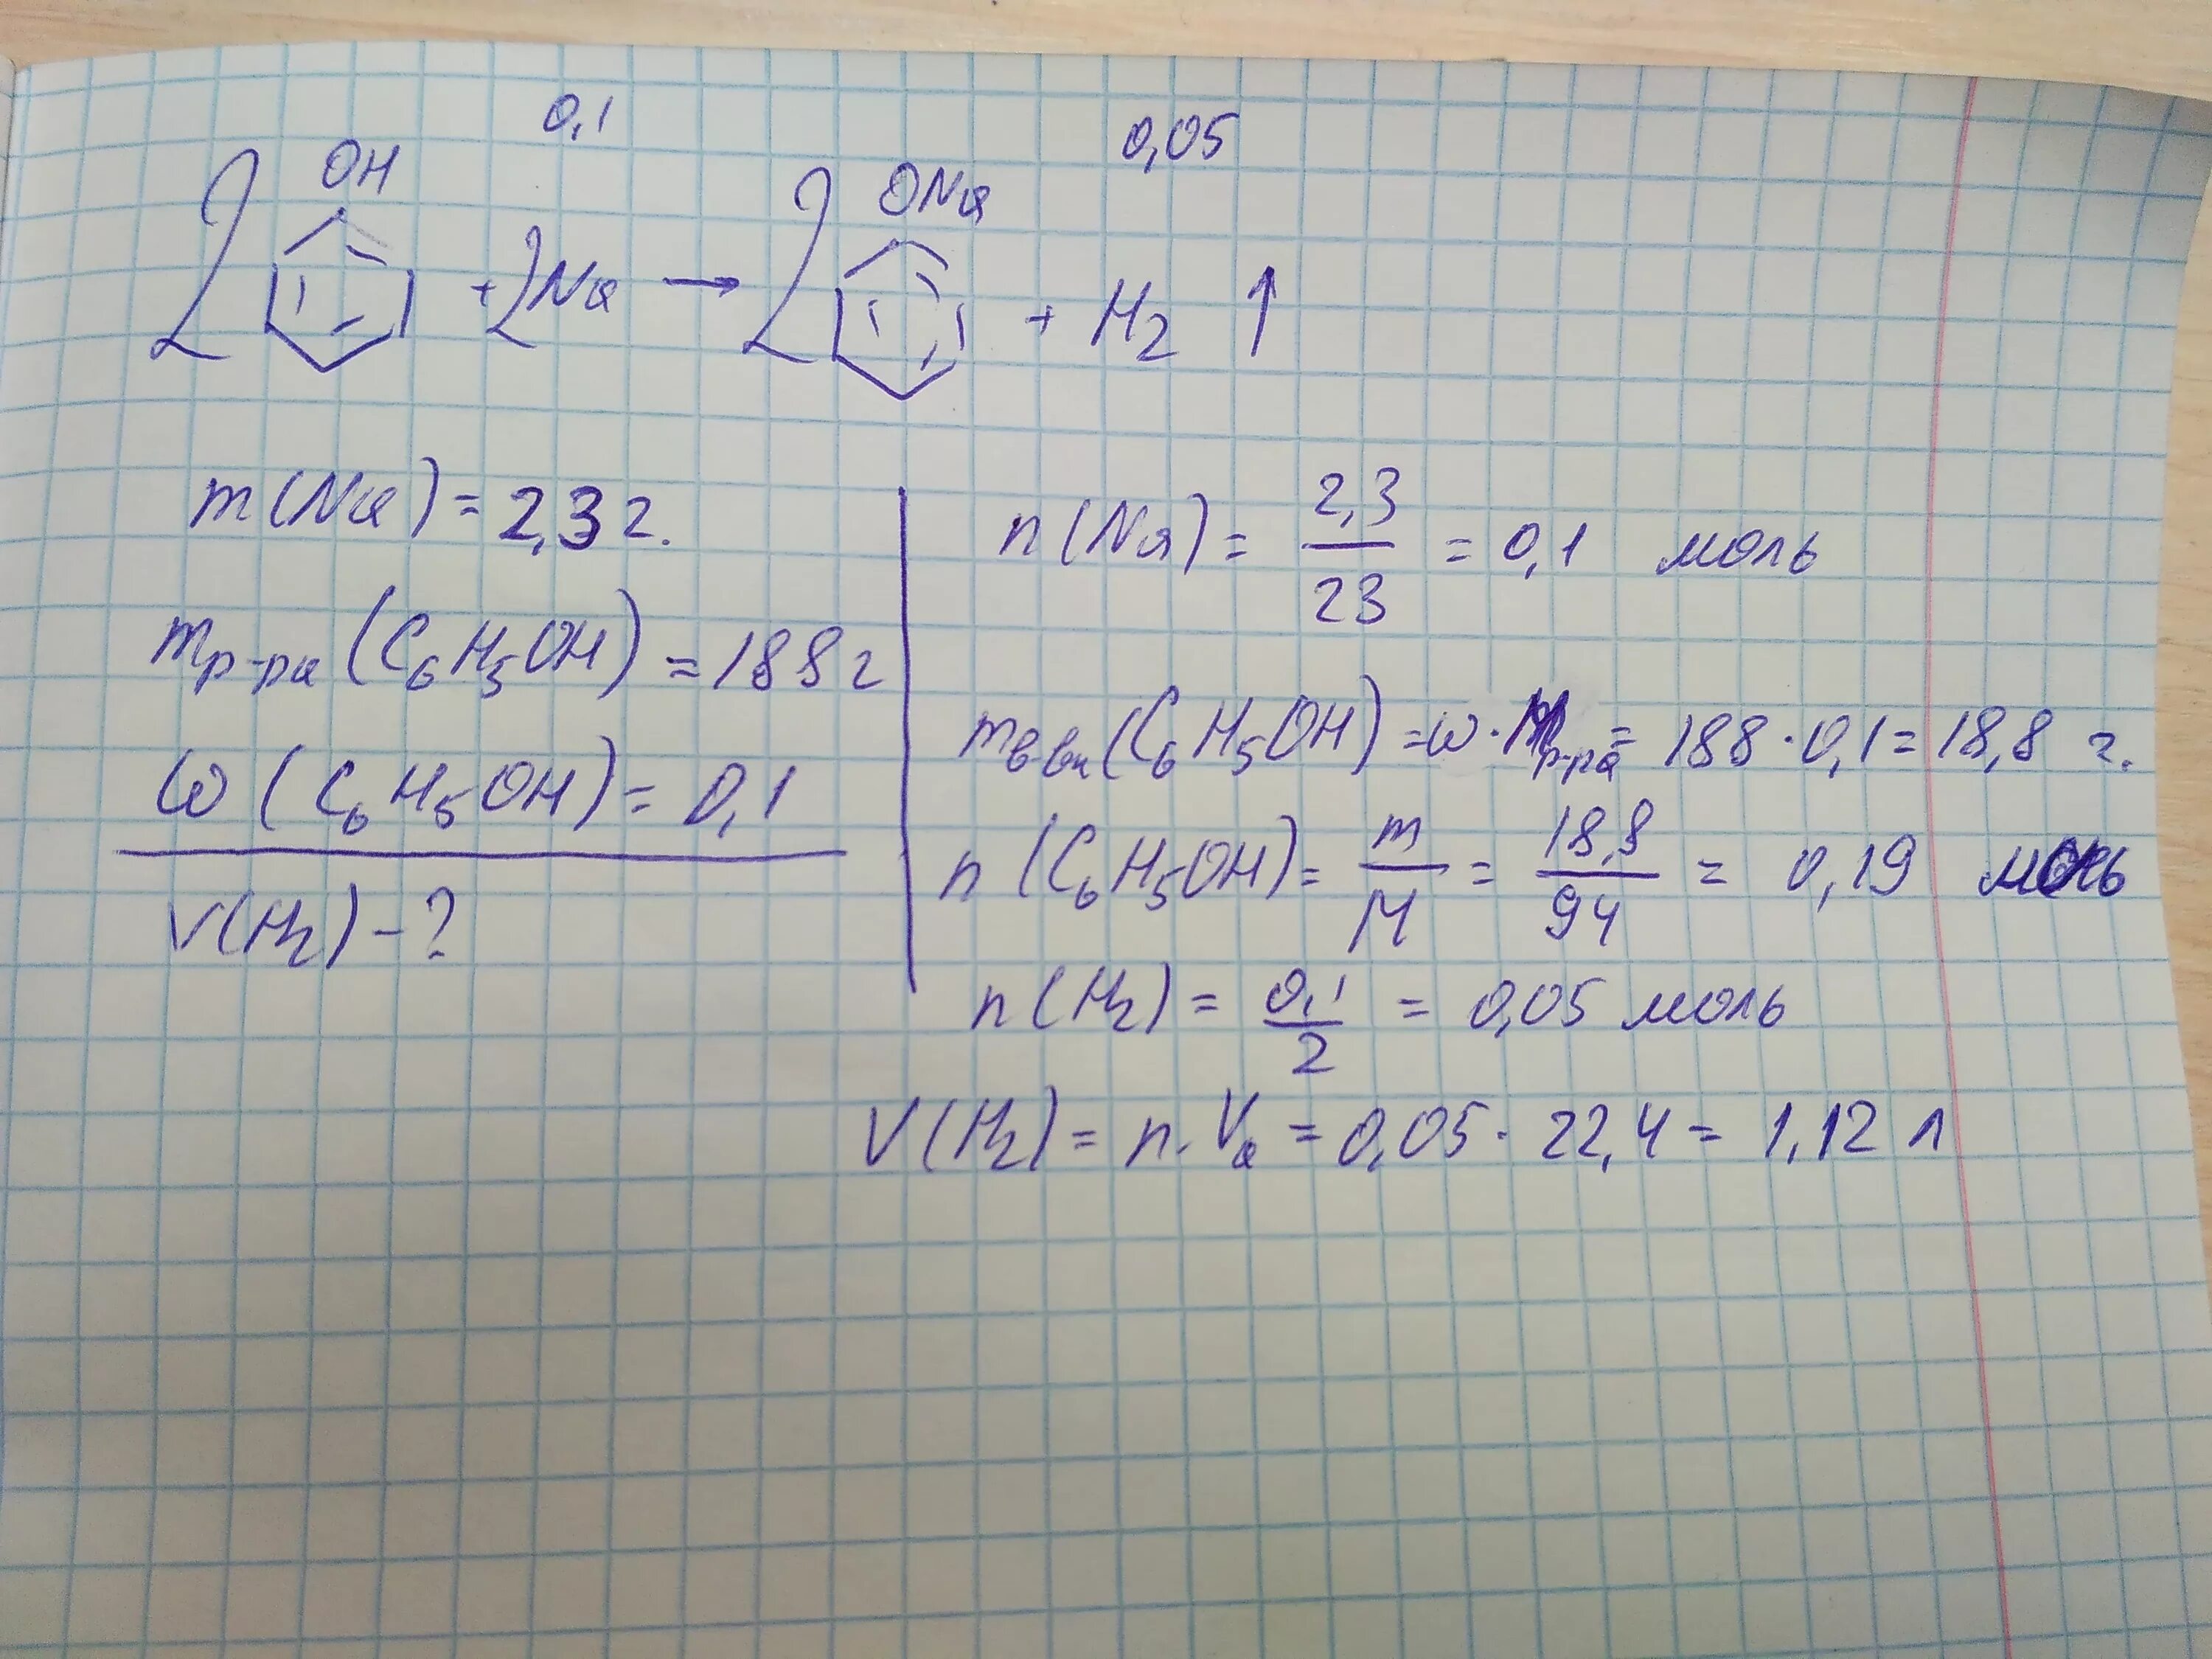 0,1 0,05
OH ONa
2 + 2Na → 2 + H2 ↑
m(Na) = 2,3 г.
mр-ра (C6H5OH) = 188 г
ω (C6H5OH) = 0,1
V(H2) - ?
n(Na) = 2,3/23 = 0,1 моль
mв-ва(C6H5OH) = ω · mр-ра = 188 · 0,1 = 18,8 г.
n (C6H5OH) = m/M = 18,8/94 = 0,19 моль
n(H2) = 0,1/2 = 0,05 моль
V(H2) = n · Va = 0,05 · 22,4 = 1,12 л